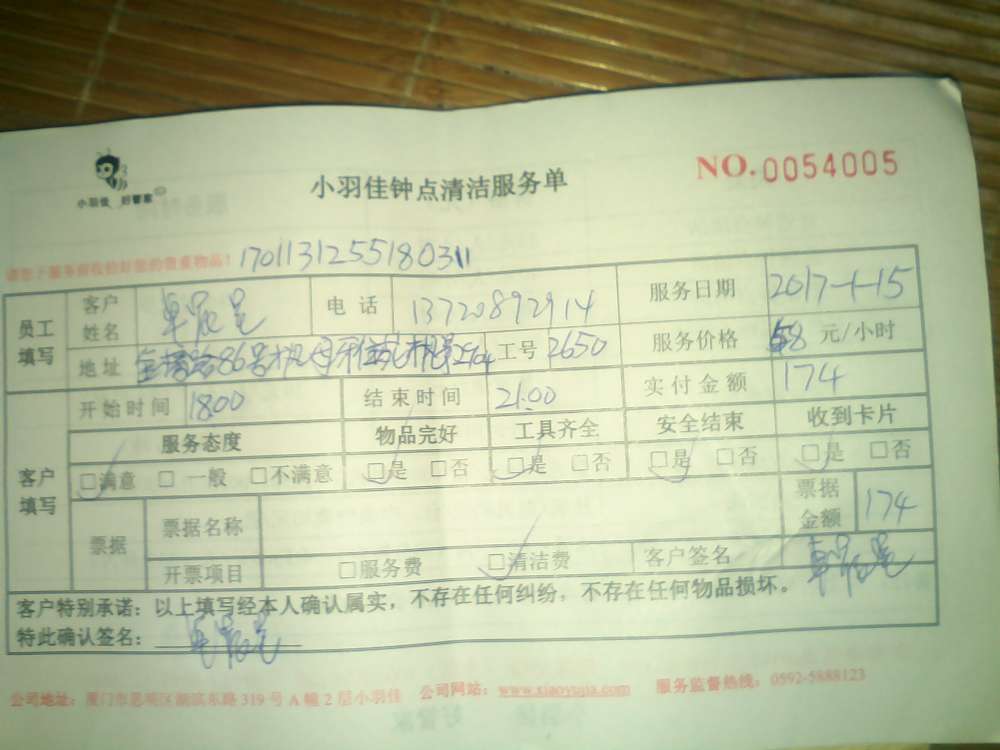 小羽佳 好管家
小羽佳钟点清洁服务单
NO.0054005
1701131255180311
员工填写 客户姓名 电话 13720892914 服务日期 2017-1-15
地址 86号 2704 工号 2650 服务价格 58 元/小时
客户填写 开始时间 18:00 结束时间 21:00 实付金额 174
服务态度 物品完好 工具齐全 安全结束 收到卡片
☑满意 □一般 □不满意 ☑是 □否 ☑是 □否 ☑是 □否 ☑是 □否
票据 票据名称 票据金额 174
开票项目 □服务费 ☑清洁费 客户签名
客户特别承诺：以上填写经本人确认属实，不存在任何纠纷，不存在任何物品损坏。
特此确认签名：
公司地址：厦门市思明区湖滨东路319号A幢2层小羽佳 公司网站：www.xiaoyujia.com 服务监督热线：0592-5888123